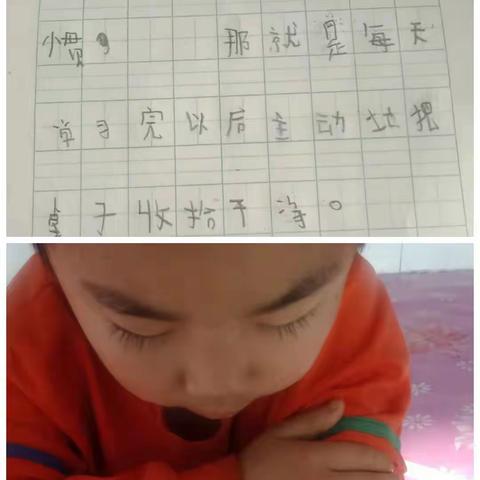 惯，那就是每天
学习完以后主动地把
桌子收拾干净。